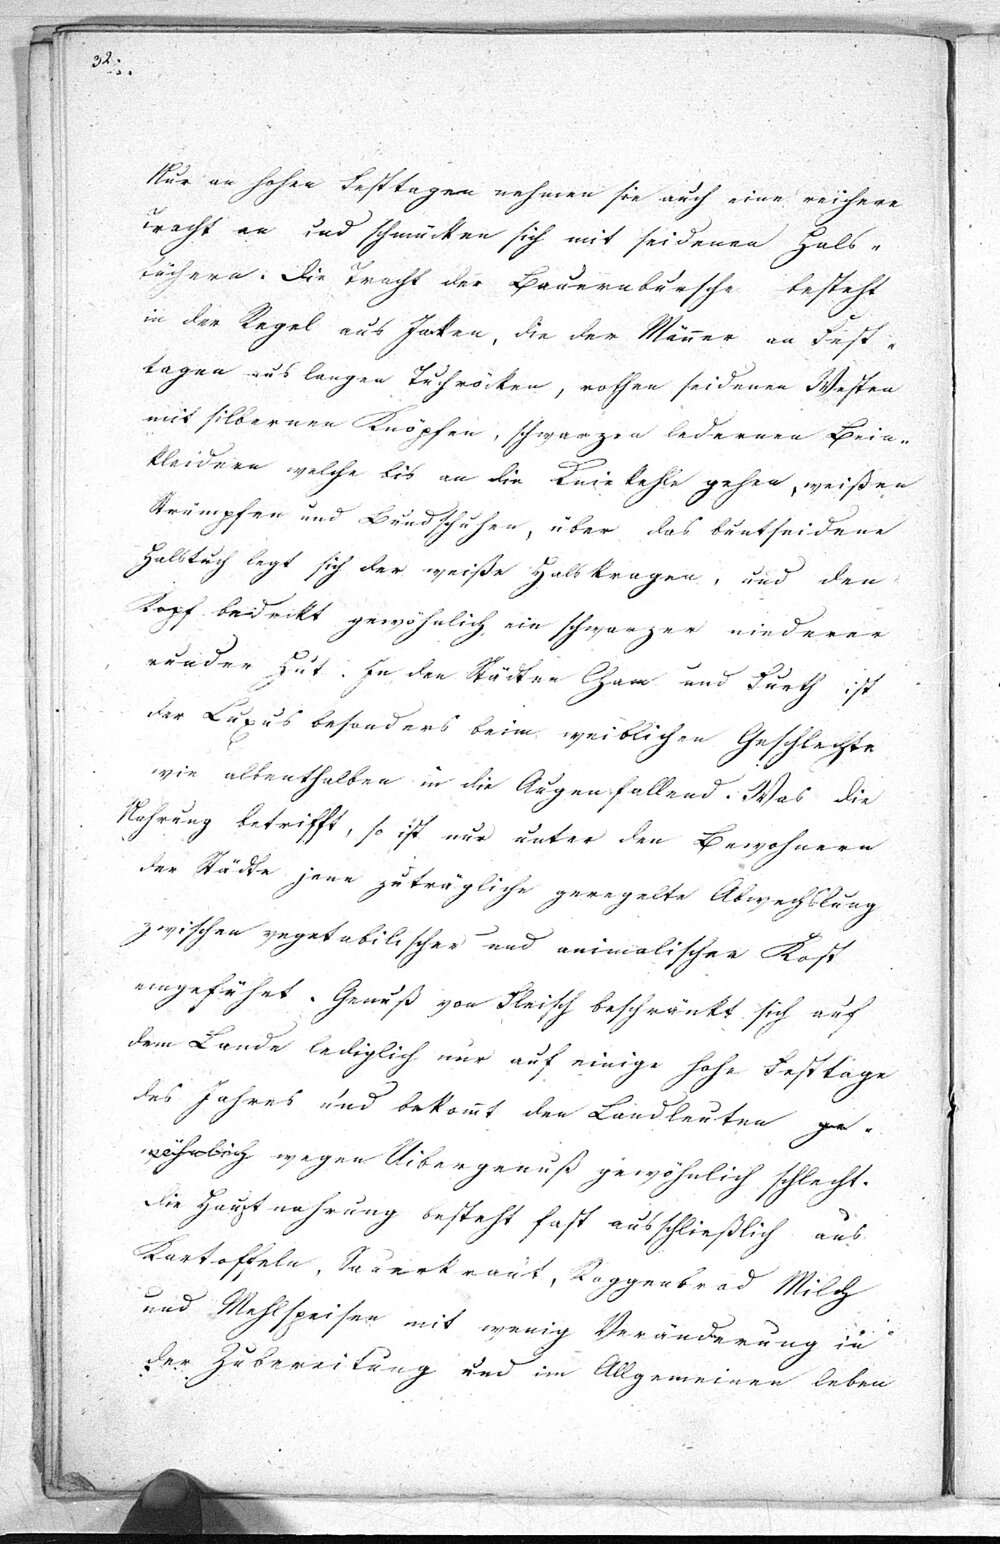 32.
Nur an hohen Festtagen nehmen sie auch eine reichere
Tracht an und schmücken sich mit seidenen Hals-
tüchern. Die Tracht der Bauernbursche besteht
in der Regel aus Jaken, die der Män̄er an Fest-
tagen aus langen Tuchröcken, rothen seidenen Westen
mit silbernen Knöpfen, schwarzen ledernen Bein-
kleidern welche bis an die Kniekehle gehen, weißen
Strümpfen und Bundschuhen, über das buntseidene
Halstuch legt sich der weiße Halskragen, und den
Kopf bedeckt gewöhnlich ein schwarzer niederer
runder Hut. In den Städten Cham und Furth ist
der Luxus besonders beim weiblichen Geschlechte
wie allenthalben in die Augen fallend. Was die
Nahrung betrifft, so ist nur unter den Bewohnern
der Städte jene zuträgliche geregelte Abwechslung
zwischen vegetabilischer und animalischer Kost
eingeführt. Genuß von Fleisch beschränkt sich auf
dem Lande lediglich nur auf einige hohe Festtage
des Jahres und bekom̄t den Landleuten ge-
wöhnlich wegen Uibergenuß gewöhnlich schlecht.
Die Hauptnahrung besteht fast ausschließlich aus
Kartoffeln, Sauerkraut, Roggenbrod Milch
und Mehlspeisen mit wenig Veränderung in
der Zubereitung und im Allgemeinen leben